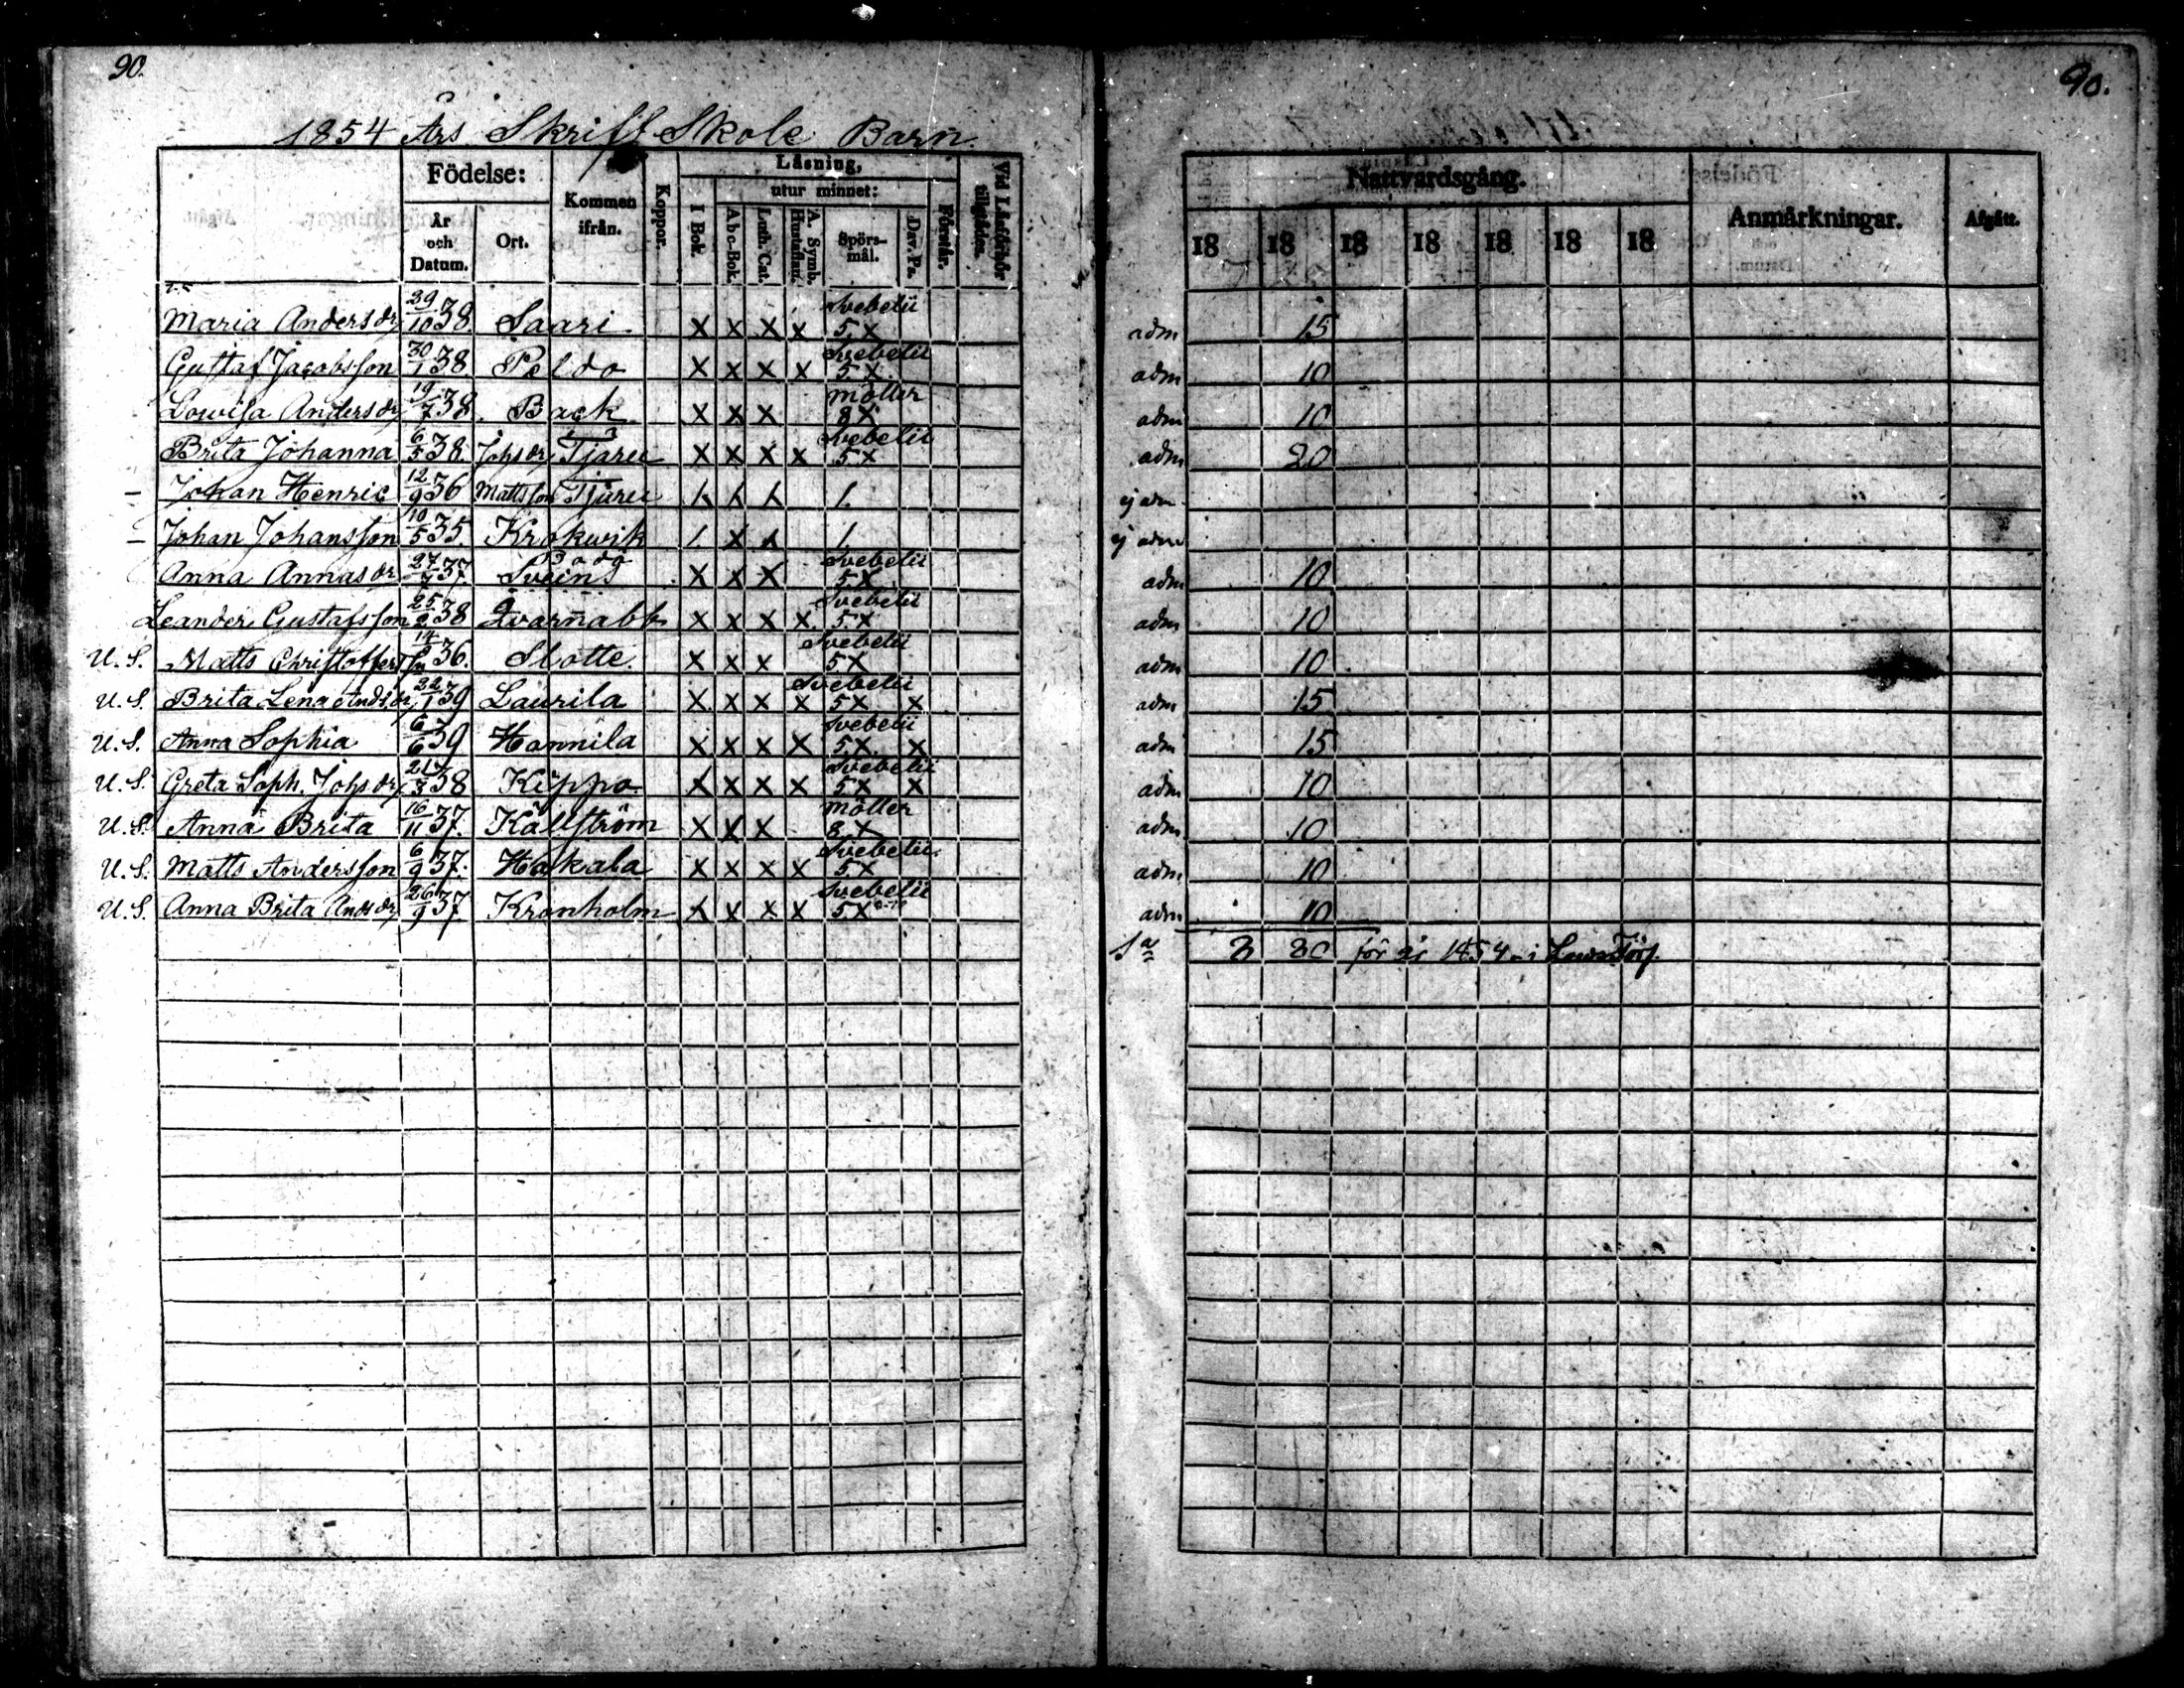 90.
1854 Års Skrift Skole Barn.
Födelse: Kommen ifrån. Koppor. Läsning, Vid Läseförhör tillgädes.
År och Datum. Ort. I Bok. utur minnet: Förstår.
A b c-Bok. Luth. Cat. A. Symb. Hustaflan. Spörsmål. Dav. Ps.
Maria Andersdr 29/10 38 Saari X X X X Svebelii 5 X
Gustaf Jacobsson 30/1 38 Peldo X X X X Svebelii 5 X
Lowisa Andersdr 19/7 38 Back X X X Möller 8 X
Brita Johanna 6/5 38. Johsdr Tjäru X X X X Svebelii 5 X
– Johan Henric 12/9 36 Mattsson Tjäru
– Johan Johansson 10/5 35. Krokwik
Anna Annasdr 27/7 37. Sveins X X X Svebelii 5 X
Leander Gustafsson 25/2 38 Qvarnabk X X X X Svebelii 5 X
U. S. Matts Christoffers 36. Slotte X X X Svebelii 5 X
U. S. Brita Lena Andsdr 22/1 39 Laurila X X X X Svebelii 5 X X
U. S. Anna Sophia 6/6 39 Hannila X X X X Svebelii 5 X X
U. S. Greta Soph. Johsdr 21/3 38 Kippo X X X X Svebelii 5 X X
U. S. Anna Brita 16/11 37. Källström X X X Möller 8 X
U. S. Matts Andersson 6/9 37. Hakala X X X X Svebelii 5 X
U. S. Anna Brita Andsdr 26/9 37 Kronholm X X X X Svebelii 5 X
90.
Nattvardsgång. Anmärkningar. Afgått.
18 18 18 18 18 18 18
adm 15
adm 10
adm 10
adm 20
ej adm
ej adm
adm 10
adm 10
adm 10
adm 15
adm 15
adm 10
adm 10
adm 10
adm 10
Sa 3 30 för år 1854 i